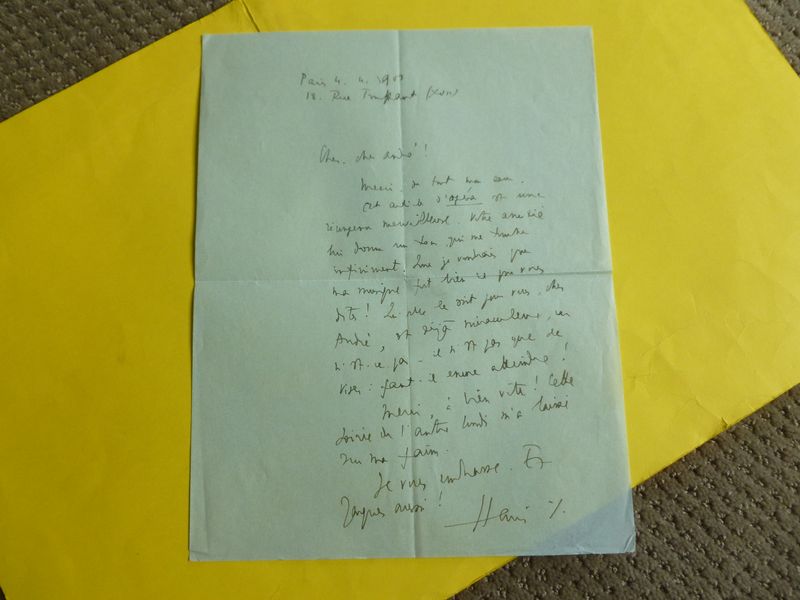 Paris 4. 4. 19
18. Rue
Cher, cher André !
Merci, de tout mon cœur.
Cet article d'opéra est une
récompense merveilleuse. Votre amitié
lui donne un ton qui me touche
infiniment. Que je voudrais que
ma musique fut bien ce que vous
dites ! Le plus le soit pour vous, cher
André, est déjà miraculeux, car
n'est-ce pas - il n'est pas que de
viser : faut-il encore atteindre !
Merci, à bien vite ! Cette
soirée de l'autre lundi m'a laissé
sur ma faim.
Je vous embrasse. Et
Jacques aussi !
Henri